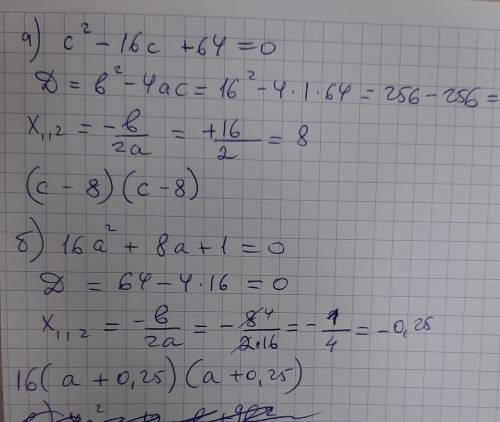 а) c² - 16c + 64 = 0
D = b² - 4ac = 16² - 4·1·64 = 256 - 256 =
x₁,₂ = -b/2a = +16/2 = 8
(c - 8)(c - 8)
б) 16a² + 8a + 1 = 0
D = 64 - 4·16 = 0
x₁,₂ = -b/2a = -8⁴/2·16 = -1/4 = -0,25
16(a + 0,25)(a + 0,25)